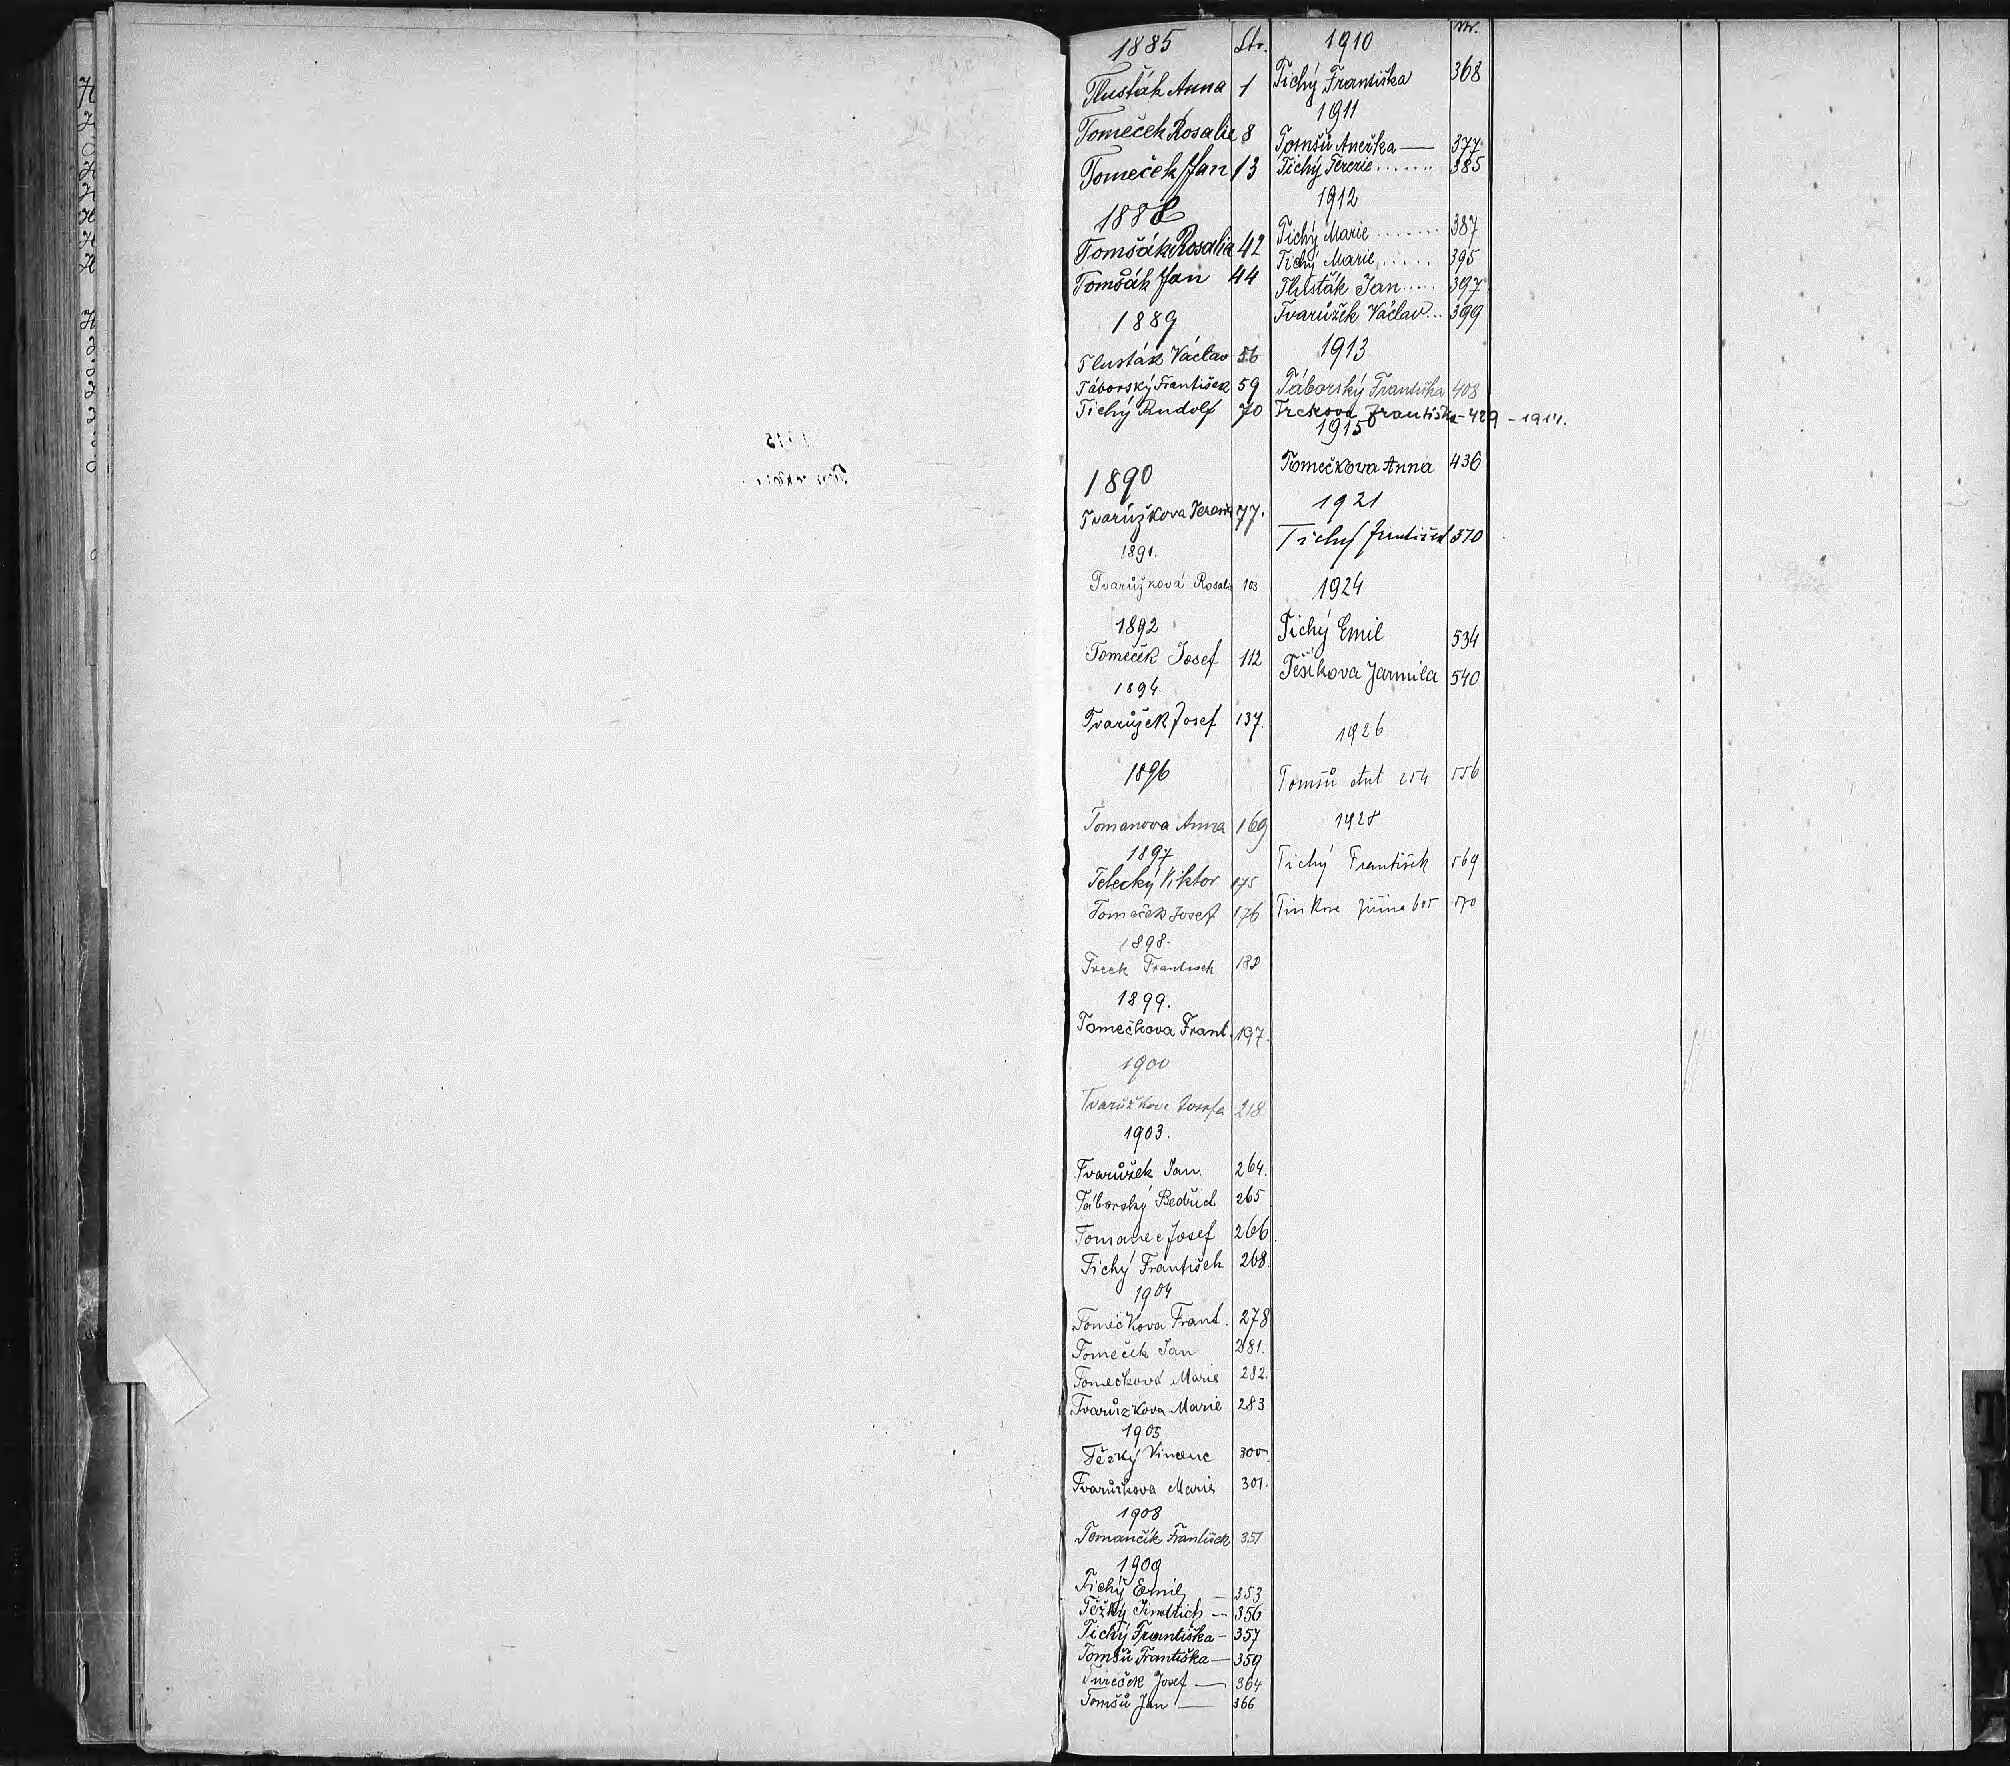 1885 Str.
Tlusták Anna 1
Tomeček Rosalie 8
Tomeček Jan 13
1888
Tomšák Rosalia 42
Tomšák Jan 44
1889
Tlusták Václav 56
Táborský František 59
Tichý Rudolf 70
1890
Tvarůžkova 77.
1891.
Tvarůžková Rosalie 103
1892
Tomeček Josef 112
1894
Tvarůžek Josef 137.
1896
Tomanova Anna 169
1897
Telecký Viktor 175
Tomeček Josef 176
1898.
Trcek František 188
1899.
Tomečkova Frant. 197.
1900
Tvarůžkova Josefa 218
1903.
Tvarůžek Jan 264.
Táborský Bedřich 265
Tomanec Josef 266.
Tichý František 268.
1904
Tomečkova Frant. 278
Tomeček Jan 281.
Tomečková Marie 282.
Tvarůzkova Marie 283
1905
Těžký Vincenc 300
Tvarůžkova Marie 301.
1908
Tomančík František 351
1909
Tichý Emil — 353
Těžký Jindřich — 356
Tichý Františka — 357
Tomšů Františka — 359
Tureček Josef — 364
Tomšů Jan — 366
1910 Str.
Tichý Františka 368
1911
Tomšů Anežka — 377
Tichý Terezie ...... 385
1912
Tichý Marie ....... 387
Tichý Marie ...... 395
Tlusták Jan ..... 397
Tvarůžek Václav ... 399
1913
Táborský Františka 408
Trckova Františka - 429 - 1914.
1915
Tomečkova Anna 436
1921
Tichý František 510
1924
Tichý Emil 534
Tešíkova Jarmila 540
1926
Tomšů Ant 254 556
1928
Tichý František 569
570